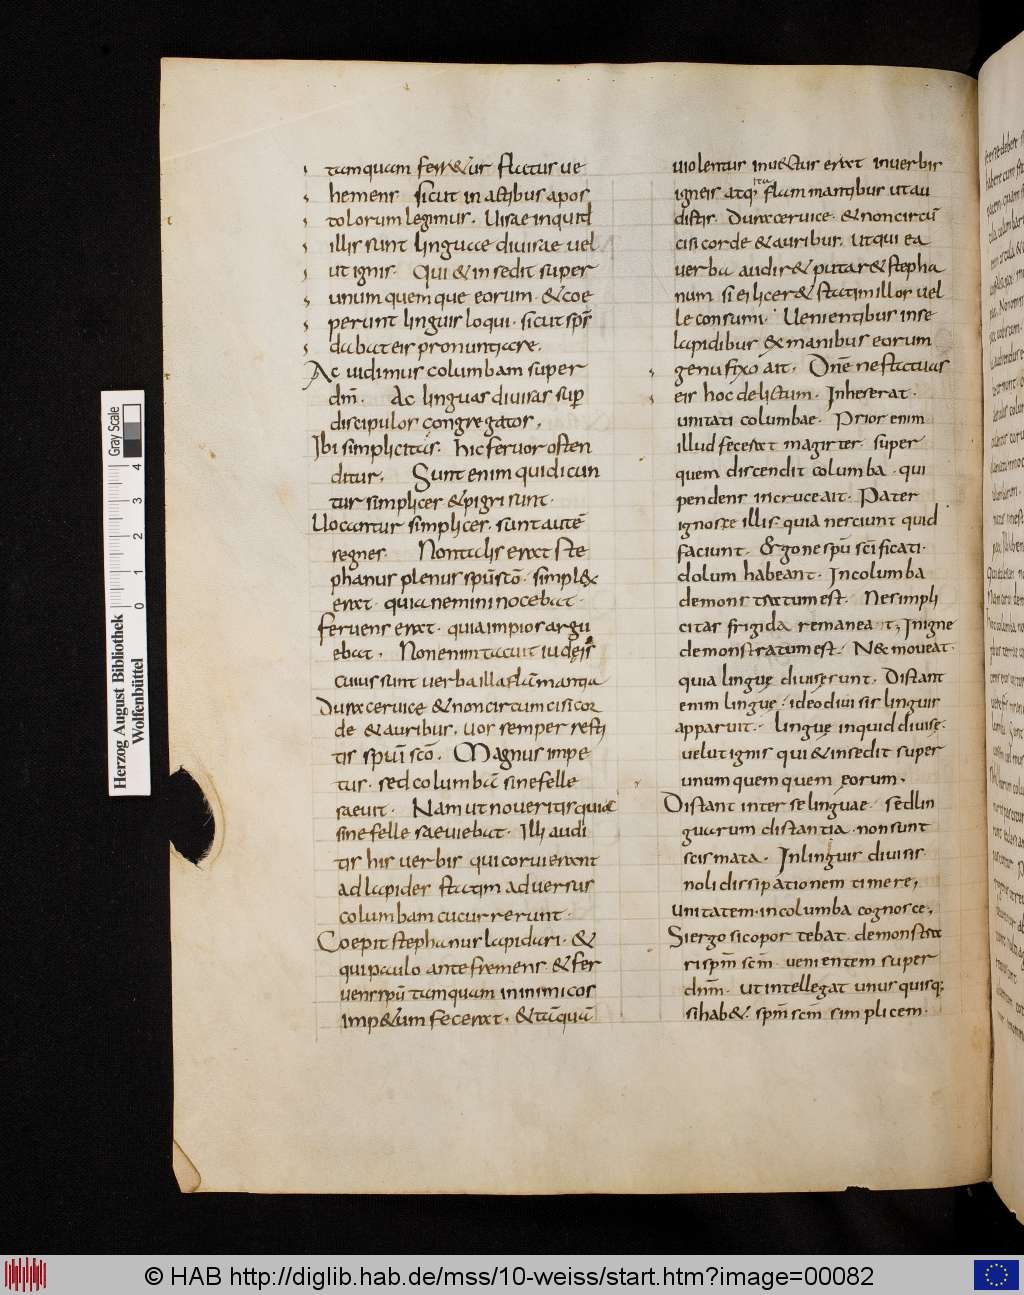 tamquam ferr&ur flatus ue
hemens sicut in actibus apos
tolorum legimus. Uisae inquid
illis sunt linguae diuisae uel
ut ignis. Qui & insedit super
unum quemque eorum. & coe
perunt linguis loqui. sicut sp̄s
dabat eis pronuntiare.
Ac uidimus columbam super
dm̄. Ac linguas diuisas sup̄
discipulos congregatos,
Ibi simplicitas. hic feruor osten
ditur, Sunt enim qui dicun
tur simplices & pigri sunt.
Uocantur simplices. sunt autē
segnes. Non talis erat ste
phanus plenus spū scō. simpl&
erat. quia nemini nocebat.
feruens erat. quia impios argu
ebat. Non enim tacuit iudęis
cuius sunt uerba illa flāmantia
Dura ceruice & non circumcisi cor
de & auribus. uos semper resti
tis spuī scō. Magnus impe
tus. sed columbā sine felle
saeuit. Nam ut noueritis quia
sine felle saeuiebat. Illi audi
tis his uerbis qui corui erant
ad lapides statim aduersus
columbam cucurrerunt.
Coepit stephanus lapidari. &
qui paulo ante fremens & fer
uens spū tamquam in inimicos
imp&um fecerat. & tāquā
uiolentus inuectus erat in uerbis
igneis atq; ita flammantibus ut au
distis. Dura ceruice. & non circū
cisi corde & auribus. ut qui ea
uerba audir& putar& stepha
num si ei licer& statim illos uel
le consumi. Uenientibus in se
lapidibus & manibus eorum
genu fixo ait. Dn̄e ne statuas
eis hoc delictum. Inheserat
unitati columbae. Prior enim
illud fecerat magister super
quem discendit columba. qui
pendens in cruce ait. Pater
ignosce illis quia nesciunt quid
faciunt. Ergo ne spū scī ficati.
dolum habeant. In columba
demonstratum est. Ne simpli
citas frigida remaneat, In igne
demonstratum est. Ne moueat
quia linguę diuisę runt. Distant
enim linguę. ideo diuisis linguis
apparuit. linguę inquid diuisę.
uelut ignis qui & insedit super
unum quemquem eorum.
Distant inter se linguae. sed lin
guarum distantia non sunt
scismata. In linguis diuisis
noli dissipationem timere,
Unitatem in columba cognosce,
Si ergo sic oportebat. demonstra
ri spm̄ scm̄ uenientem super
dnm̄. ut intellegat unus quisq;
si hab&. spm̄ scm simplicem.
Herzog August Bibliothek
Wolfenbüttel
0 1 2 3 4
Gray Scale
© HAB http://diglib.hab.de/mss/10-weiss/start.htm?image=00082